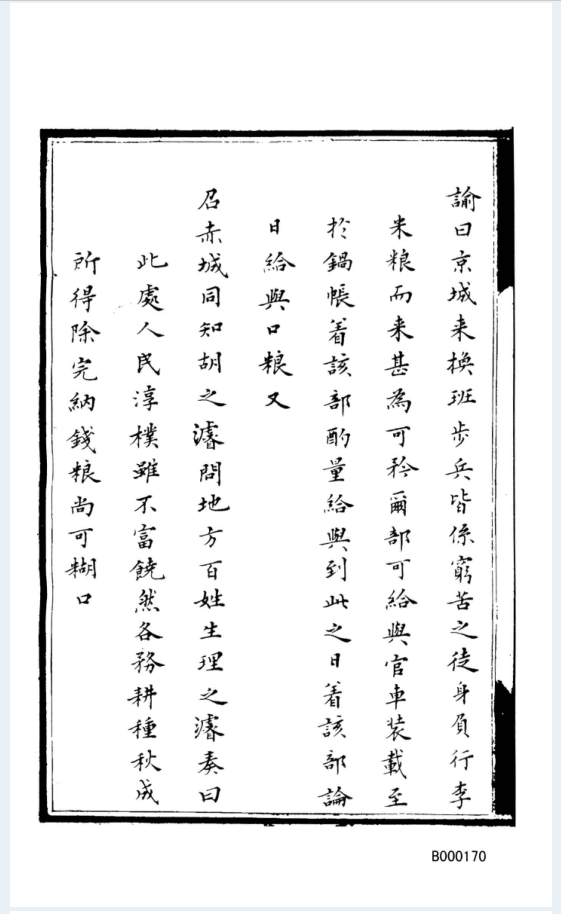 諭曰京城来換班步兵皆係窮苦之徒身負行李
米粮而来甚為可矜爾部可給與官車装載至
扵鍋帳着該部酌量給與到此之日着該部論
日給與口粮又
召赤城同知胡之濬問地方百姓生理之濬奏曰
此處人民淳樸雖不富饒然各務耕種秋成
所得除完納錢粮尚可糊口
B000170